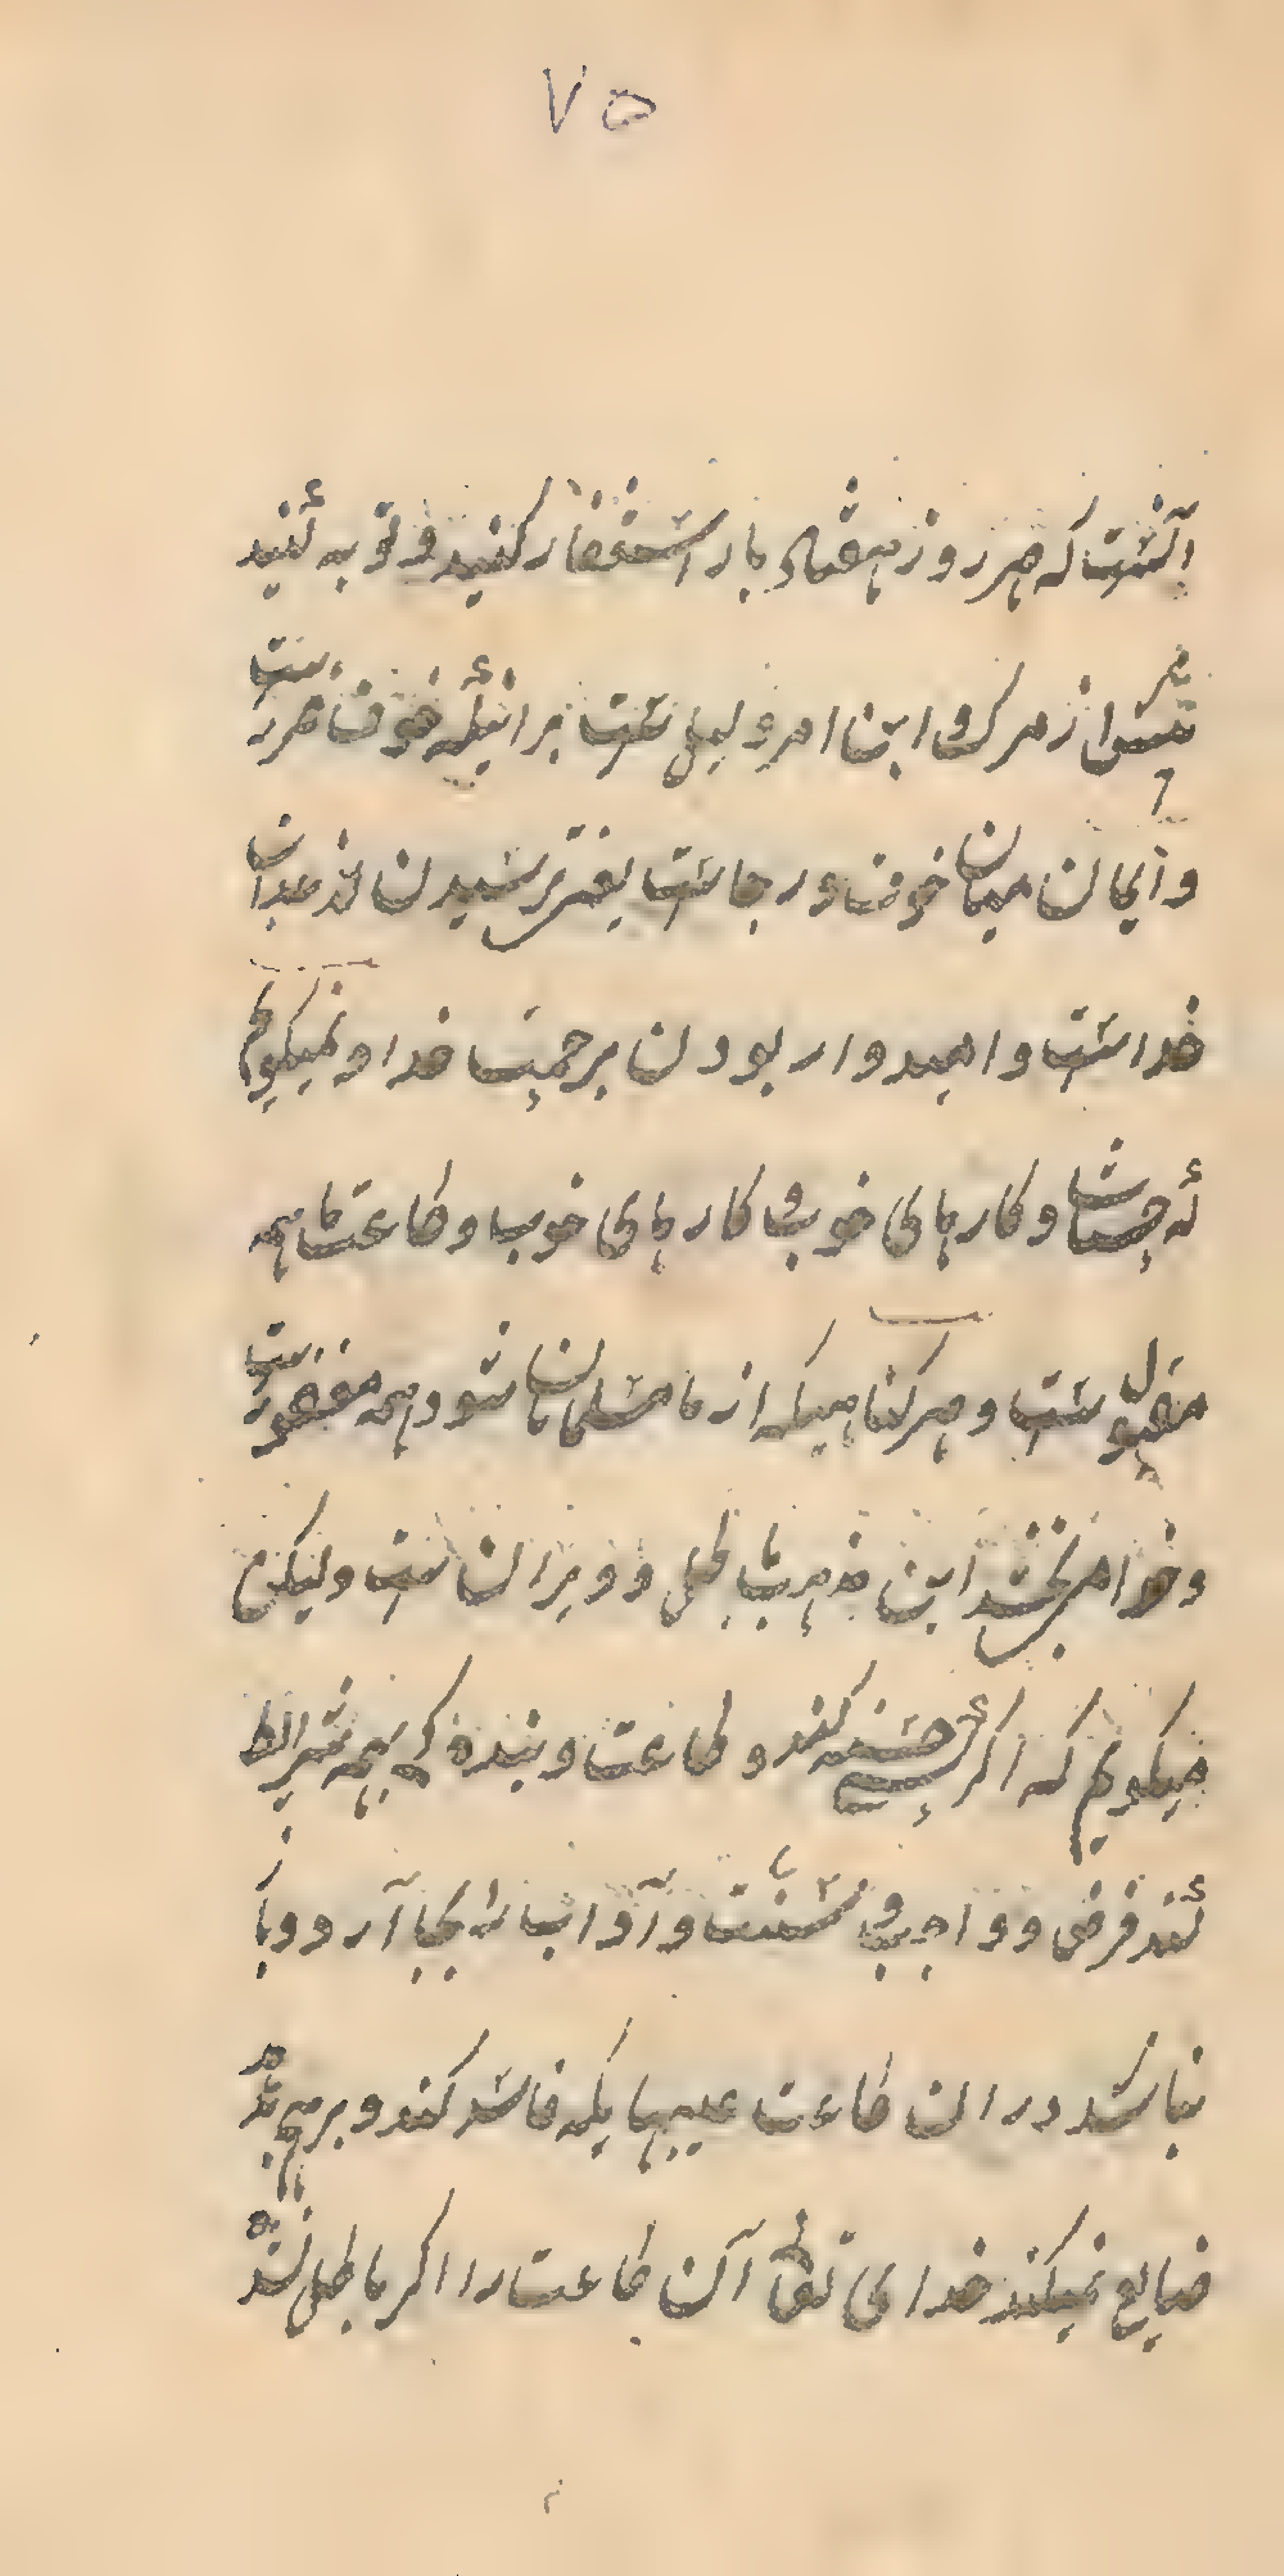 ۷۵
آنست که هر روز هفتاد بار استغفار کنید و توبه کنید
پیش از مرک و این امر دلیلست برانکه خوف ضرورست
و ایمان میان خوف و رجاست یعنی ترسیدن از عذاب
خداست و امیدوار بودن برحمت خدا و نمیکویم
که حسنات و کارهای خوب و کارهای خوب و طاعت ما همه
مقبولست و هر کناهیکه از ما مسلمانان شود همه مغفورست
و خدا می بخشد این مذهب باطل و ویرانست ولیکن
میکویم که اکر حسنه کند و طاعت و بنده که بهمه شرایط
کند فرض و واجب و سنت و آداب را بجا آرد و باز
نباشد در ان طاعت عیبهایکه فاسد کند و برهم زند
ضایع نمیکند خدای تعا آن طاعت را اکر باطل نشد